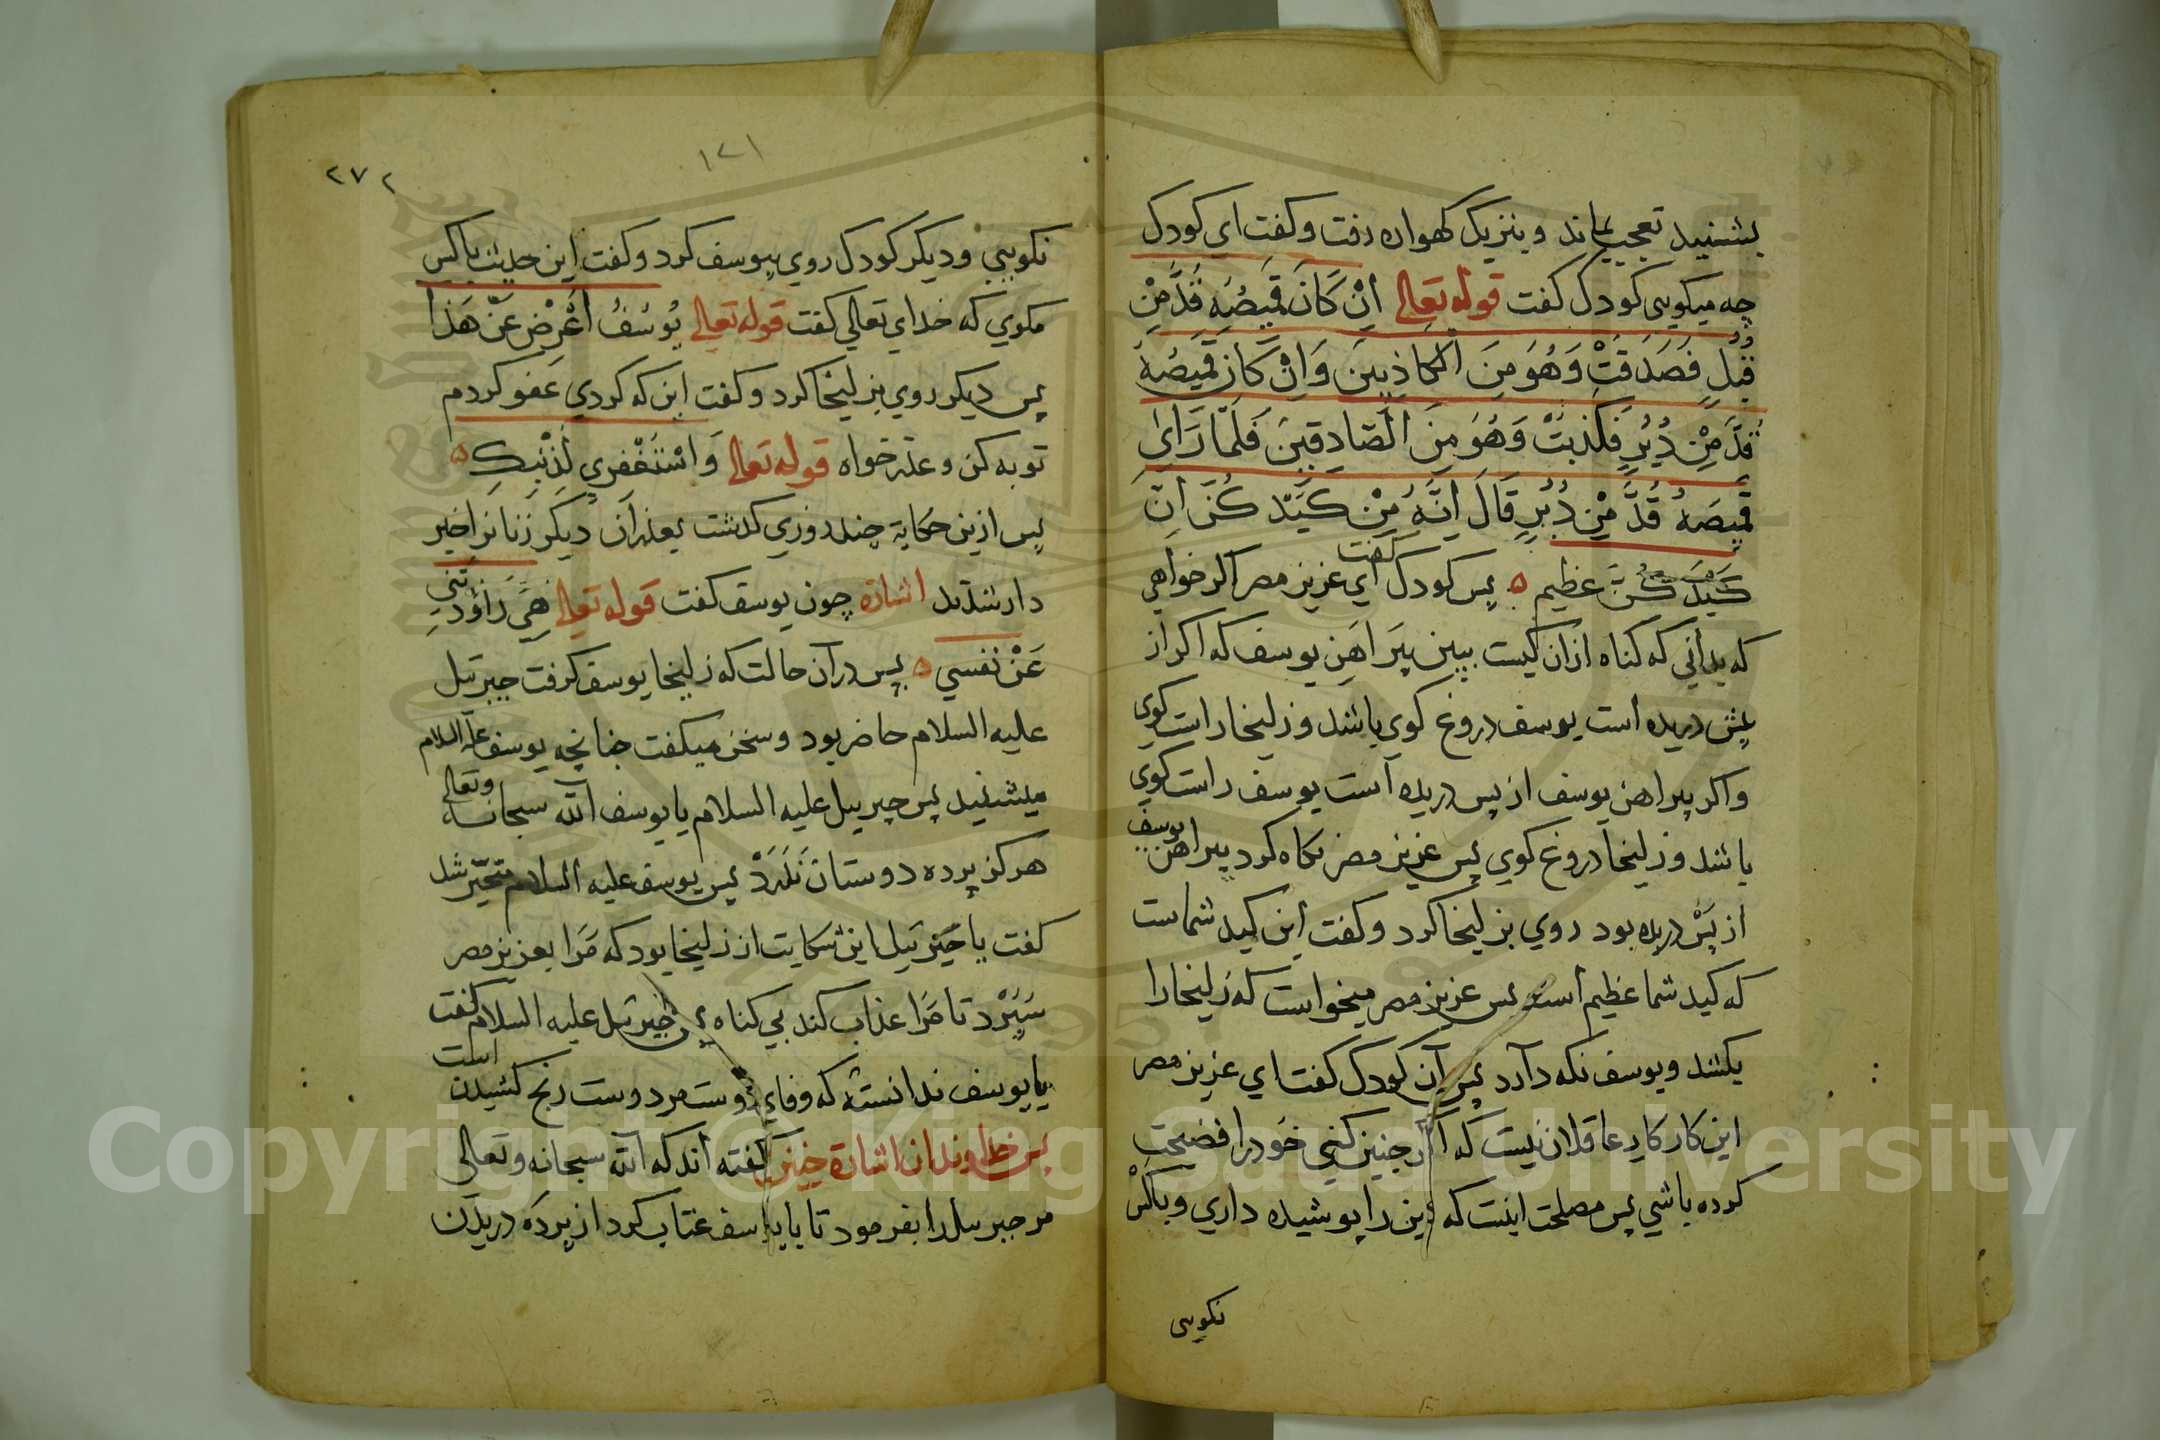 بشنید تعجب بماند و بنزیک کهواره رفت و کفت ای کودک
چه میکویی کودک کفت قوله تعالی اِنْ كَانَ قَمِيصُهُ قُدَّ مِنْ
قُبُلٍ فَصَدَقَتْ وَهُوَ مِنَ الْكَاذِبِينَ وَاِنْ كَانَ قَمِيصُهُ
قُدَّ مِنْ دُبُرٍ فَكَذَبَتْ وَهُوَ مِنَ الصَّادِقِينَ فَلَمَّا رَاى
قَمِيصَهُ قُدَّ مِنْ دُبُرٍ قَالَ اِنَّهُ مِنْ كَيْدِكُنَّ اِنَّ
كَيْدَكُنَّ عظيم ه پس کودک کفت ای عزیز مصر اکر خواهی
که بدانی که کناه ازان کیست ببین پیراهن یوسف که اکر از
پیش دریده است یوسف دروغ کوی باشد و زلیخا راست کوی
واکر پیراهن یوسف از پس دریده است یوسف راست کوی
باشد و زلیخا دروغ کوی پس عزیز مصر نکاه کرد پیراهن یوسف
از پس دریده بود روی بزلیخا کرد و کفت این کید شماست
که کید شما عظیم است پس عزیز مصر میخواست که زلیخا را
بکشد و یوسف نکه دارد پس آن کودک کفت ای عزیز مصر
این کار کار عاقلان نیست که اکر چنین کنی خود را فضیحت
کرده باشی پس مصلحت اینست که این را پوشیده داری و باکس
نکویی
١٢١
٢٧٢
نکویی و دیکر کودک روی بیوسف کرد و کفت این حدیث باکس
مکوی که خدای تعالی کفت قوله تعالی يُوسُفُ اَعْرِضْ عَنْ هَذَا
پس دیکر روی بزلیخا کرد و کفت این که کردی عفو کردم
توبه کن و عذر خواه قوله تعالی وَاسْتَغْفِرِي لِذَنْبِكِ ه
پس ازین حکایة چند روزی کذشت بعد ازان دیکر زنانرا خبر
دار شدند اشارة چون یوسف کفت قوله تعالی هِيَ رَاوَدَتْنِي
عَنْ نَفْسِي ه پس در آن حالت که زلیخا یوسف کرفت جبرئیل
علیه السلام حاضر بود و سخن میکفت چنانچه یوسف علیه السلام
میشنید پس جبرییل علیه السلام یا یوسف الله سبحانه وتعالی
هرکز پرده دوستان نَدَرَدْ پس یوسف علیه السلام متحیّر شد
کفت یا جبرئیل این شکایت از زلیخا بود که مرا بعزیز مصر
سپرد تا مرا عذاب کند بی کناه پس جبرئیل علیه السلام کفت
یا یوسف ندانسته که وفای دوست مر دوست رنج کشیدن است
پس خداوندان اشارة چنین کفته اند که الله سبحانه وتعالی
مر جبرئیل را بفرمود تا با یوسف عتاب کرد از پرده دریدن
Copyright © King Saud University